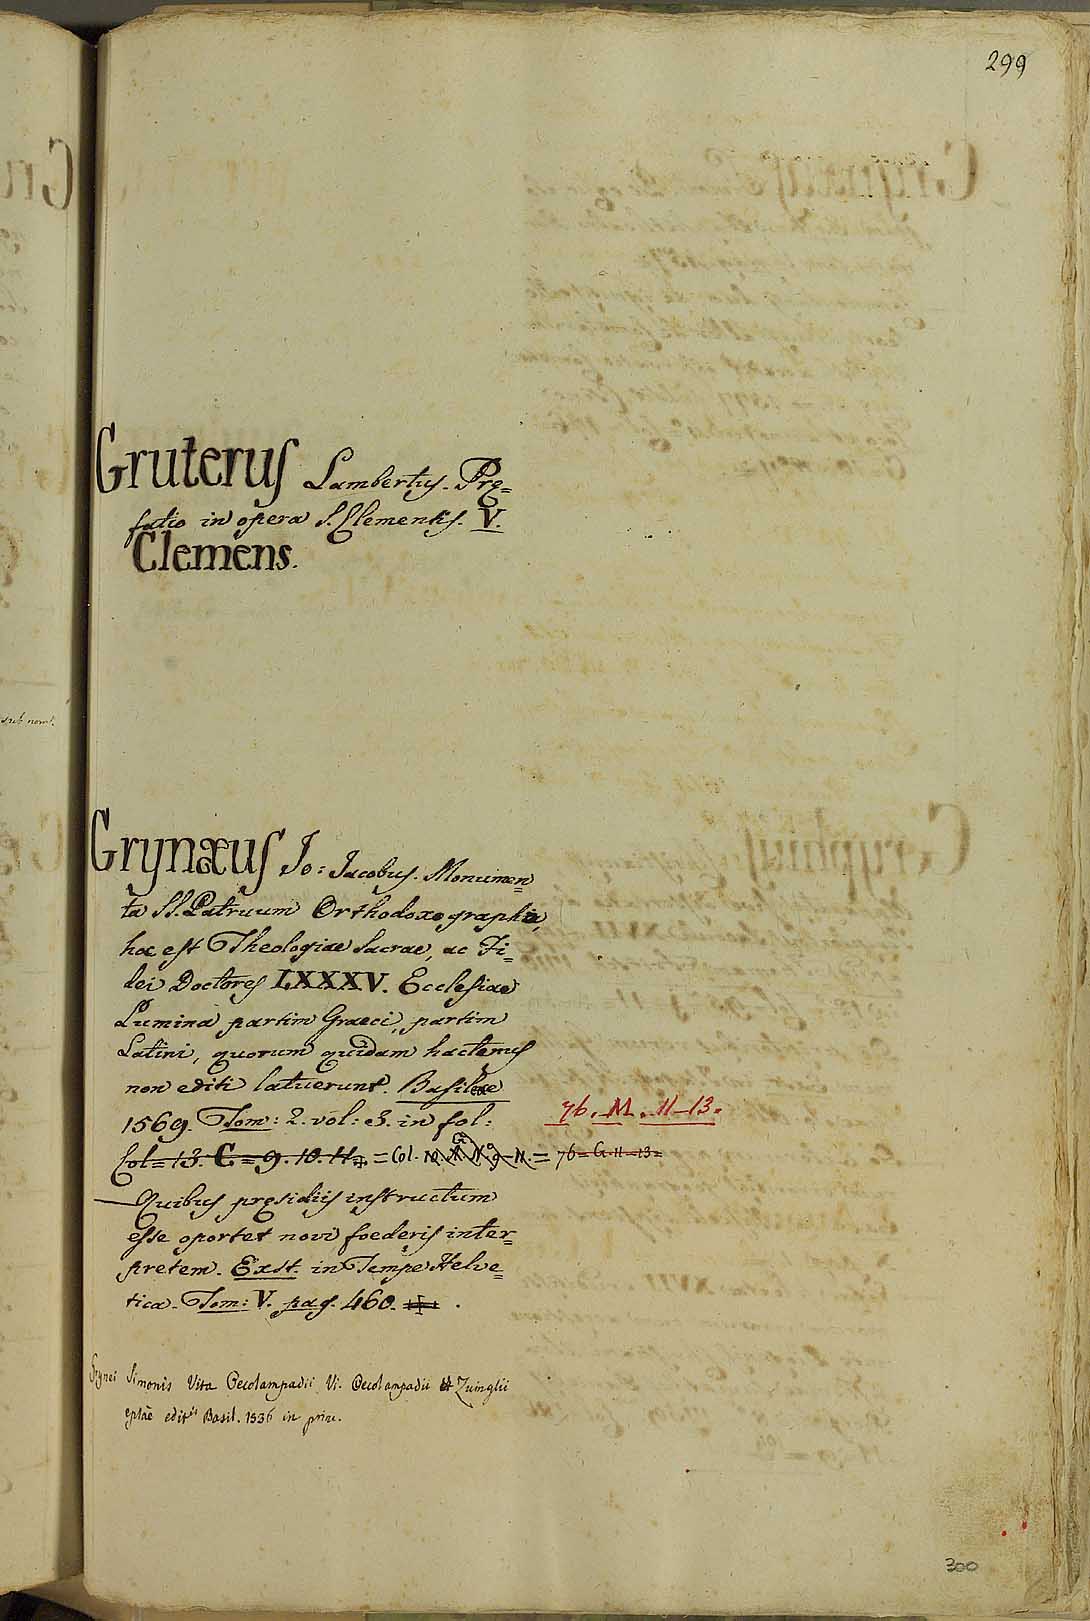 299
Gruterus Lambertus. Pre=
fatio in opera S. Clementis. V.
Clemens.
sub nom.
Grynæus Jo: Jacobus. Monumen=
ta SS. Patruum Orthodoxographia,
hoc est Theologiae Sacrae, ac Fi=
dei Doctores LXXXV. Ecclesiae
Lumina partim Graeci, partim
Latini, quorum quidam hactenus
non editi latuerunt. Basileae
1569. Tom: 2. vol: 3. in fol:
76. M. 11-13.
Col= 13. C = 9. 10. 11. = Col. 10. N. 9-11. = 76= G. 11-13=
Quibus presidiis instructum
esse oportet novi foederis inter=
pretem. Exst. in Tempe Helve=
tica. Tom: V. pag. 460.
Grynei Simonis Vita Oecolampadii Vi. Oecolampadii et Zuinglii
eplae edit. Basil. 1536 in prin.
300